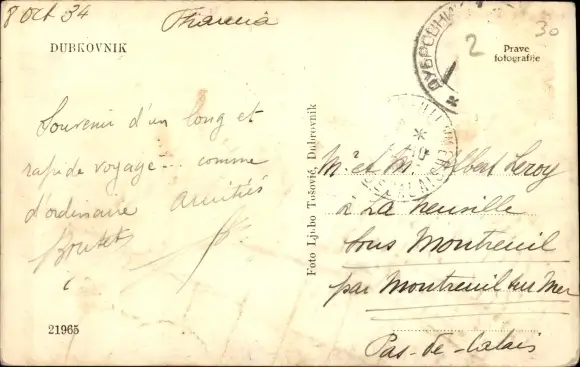 8 Oct 34
Francia
DUBROVNIK
2
30
Prave
fotografije
ДУБРОВНИК
Souvenir d'un long et
rapide voyage... comme
d'ordinaire Amitiés
Boutet
Foto Ljubo Tošović, Dubrovnik
M. et M. Albert Leroy
à La Neuville
sous Montreuil
par Montreuil sur Mer
Pas-de-Calais
21965